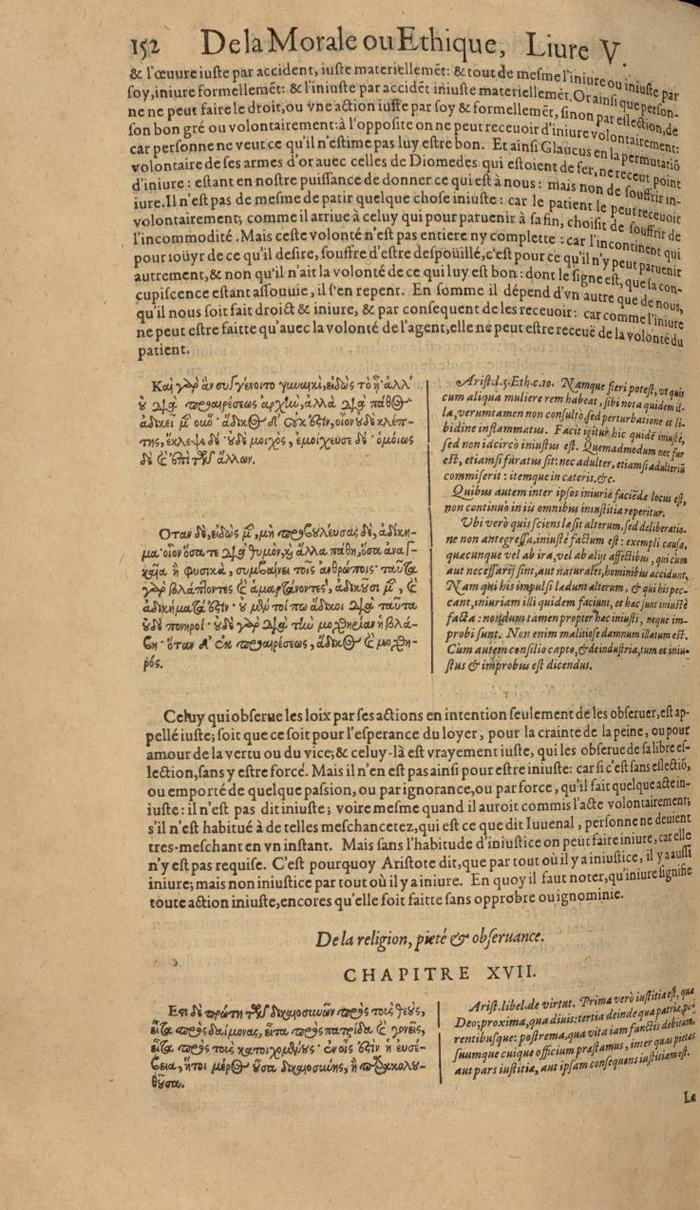 152 De la Morale ou Ethique, Liure V.
& l'œuure iuste par accident, iuste materiellemẽt: & tout de mesme l'iniure ou iniuste par
soy, iniure formellemẽt: & l'iniuste par accidẽt iniuste materiellemẽt. Or ainsi que person-
ne ne peut faire le droit, ou vne action iuste par soy & formellemẽt, sinon par eslection, de
son bon gré ou volontairement: à l'opposite on ne peut receuoir d'iniure volontairement:
car personne ne veut ce qu'il n'estime pas luy estre bon. Et ainsi Glaucus en la permutatiõ
volontaire de ses armes d'or auec celles de Diomedes qui estoient de fer, ne receut point
d'iniure: estant en nostre puissance de donner ce qui est à nous: mais non de souffrir in-
iure. Il n'est pas de mesme de patir quelque chose iniuste: car le patient le peut receuoir
volontairement; comme il arriue à celuy qui pour paruenir à sa fin, choisit de souffrir de
l'incommodité. Mais ceste volonté n'est pas entiere ny complette: car l'incontinent qui
pour ioüyr de ce qu'il desire, souffre d'estre despouillé, c'est pour ce qu'il n'y peut paruenir
autrement, & non qu'il n'ait la volonté de ce qui luy est bon: dont le signe est, que sa con-
cupiscence estant assouuie, il s'en repent. En somme il dépend d'vn autre que de nous,
qu'il nous soit fait droict & iniure, & par consequent de les receuoir: car comme l'iniure
ne peut estre faitte qu'auec la volonté de l'agent, elle ne peut estre receuë de la volonté du
patient.
Καὶ γὰρ ἂν συγγένοιτο γυναικὶ, εἰδὼς τὸ ᾗ· ἀλλ'
οὐ διὰ προαιρέσεως ἀρχὴν, ἀλλὰ διὰ πάθος
ἀδικεῖ μὲν οὖν· ἄδικος δ' οὐκ ἔστιν, οἷον οὐδὲ κλέπ-
της, ἔκλεψε δέ· οὐδὲ μοιχὸς, ἐμοίχευσε δέ· ὁμοίως
δὲ καὶ ἐπὶ τῶν ἄλλων.
Ὅταν δὲ, εἰδὼς μὲν, μὴ προβουλεύσας δὲ, ἀδίκη-
μα· οἷον ὅσα τε διὰ θυμὸν, καὶ ἄλλα πάθη, ὅσα ἀναγ-
καῖα ἢ φυσικὰ, συμβαίνει τοῖς ἀνθρώποις· ταῦτα
γὰρ βλάπτοντες καὶ ἁμαρτάνοντες, ἀδικοῦσι μὲν, καὶ
ἀδικήματά ἐστιν· οὐ μέντοι πω ἄδικοι διὰ ταῦτα
οὐδὲ πονηροί· οὐδὲ γὰρ διὰ τὴν μοχθηρίαν ἡ βλά-
βη· ὅταν δ' ἐκ προαιρέσεως, ἄδικος καὶ μοχθη-
ρός.
Arist. l. 5. Eth. c. 10. Namque fieri potest, vt quis
cum aliqua muliere rem habeat, sibi nota quidem il-
la, verumtamen non consulto, sed perturbatione et li-
bidine inflammatus. Facit igitur hic quidẽ iniustè,
sed non idcirco iniustus est. Quemadmodum nec fur
est, etiamsi furatus sit: nec adulter, etiamsi adulteriũ
commiserit: itemque in cæteris. &c.
Quibus autem inter ipsos iniuriæ faciẽdæ locus est,
non continuò in iis omnibus iniustitia reperitur.
Vbi verò quis sciens læsit alterum, sed deliberatio-
ne non antegressa, iniustè factum est: exempli causa,
quæcunque vel ab ira, vel ab aliis affectibus, qui cum
aut necessarij sint, aut naturales, hominibus accidunt,
Nam qui his impulsi lædunt alterum, & qui his pec-
cant, iniuriam illi quidem faciunt, et hæc sunt iniustè
facta: nondum tamen propter hæc iniusti, neque im-
probi sunt. Non enim malitiose damnum illatum est.
Cùm autem consilio capto, & de industria, tum et iniu-
stus & improbus est dicendus.
Celuy qui obserue les loix par ses actions en intention seulement de les obseruer, est ap-
pellé iuste; soit que ce soit pour l'esperance du loyer, pour la crainte de la peine, ou pour
amour de la vertu ou du vice; & celuy-là est vrayement iuste, qui les obserue de sa libre es-
lection, sans y estre forcé. Mais il n'en est pas ainsi pour estre iniuste: car si c'est sans eslectiõ,
ou emporté de quelque passion, ou par ignorance, ou par force, qu'il fait quelque acte in-
iuste: il n'est pas dit iniuste; voire mesme quand il auroit commis l'acte volontairement;
s'il n'est habitué à de telles meschancetez, qui est ce que dit Iuuenal, personne ne deuient
tres-meschant en vn instant. Mais sans l'habitude d'iniustice on peut faire iniure, car elle
n'y est pas requise. C'est pourquoy Aristote dit, que par tout où il y a iniustice, il y a aussi
iniure; mais non iniustice par tout où il y a iniure. En quoy il faut noter, qu'iniure signifie
toute action iniuste, encores qu'elle soit faitte sans opprobre ou ignominie.
De la religion, pieté & obseruance.
CHAPITRE XVII.
Ἔστι δὲ πρώτη τῶν δικαιοσυνῶν πρὸς τοὺς θεοὺς,
εἶτα πρὸς δαίμονας, εἶτα πρὸς πατρίδα καὶ γονεῖς,
εἶτα πρὸς τοὺς κατοιχομένους· ἐν οἷς ἐστὶν ἡ εὐσέ-
βεια, ἤτοι μέρος οὖσα δικαιοσύνης, ἢ παρακολου-
θοῦσα.
Arist. libel. de virtut. Prima verò iustitia est, quæ
Deo; proxima, quæ diuis: tertia deinde quæ patriæ, pa-
rentibusque: postrema, qua vita iam functis debitum,
suumque cuique officium præstamus, inter quas pietas
aut pars iustitiæ, aut ipsam consequens iustitiam est.
La